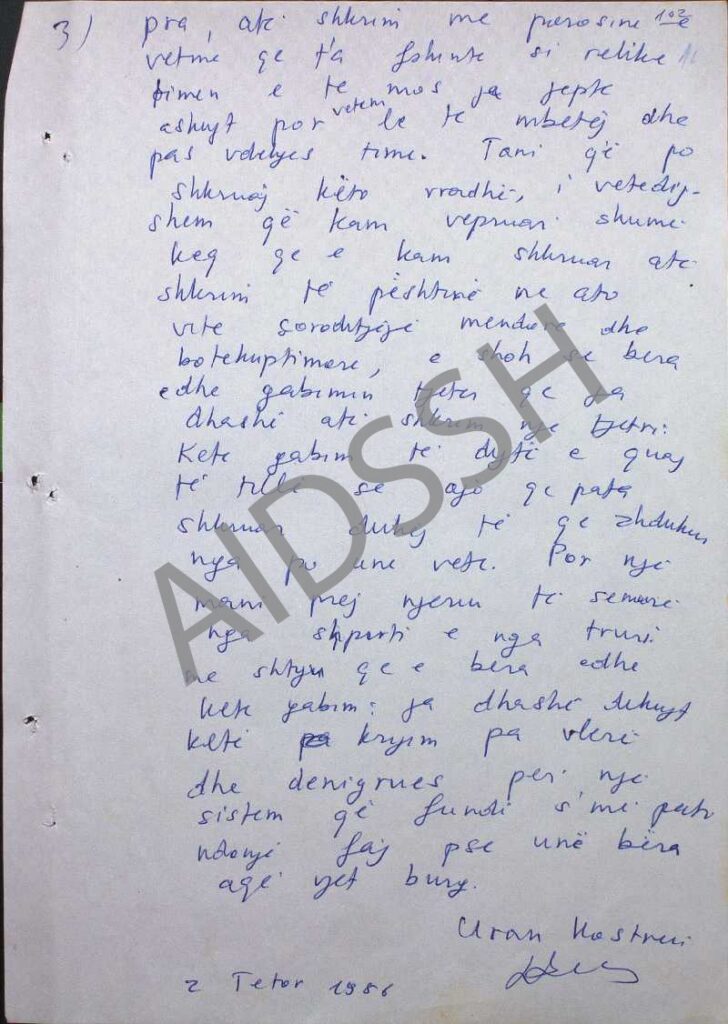 3) pra, atë shkrim me porosine e 102
vetme qe t'a fshinte si relike
timen e te mos ja jepte
askujt por vetem le te mbetej dhe
pas vdekjes time. Tani që po
shkruaj këto rradhë, i vetedij-
shem që kam vepruar shumë
keq qe e kam shkruar atë
shkrim të pështirë ne ato
vite çorodítjeje mendore dhe
botekuptimore, e shoh se bera
edhe gabimin tjeter qe ja
dhashë atë shkrim nje tjetri.
Kete gabim të dytë e quaj
të tille se ajo qe pata
shkruar duhej të qe zhdukur
nga po une vete. Por një
mani prej njeriu të semurë
nga shpirti e nga truri
me shtyu qe e bera edhe
kete gabim: ja dhashë dikujt
këtë krijim pa vlerë
dhe denigrues për një
sistem që fundi s'më pati
ndonjë faj pse unë bëra
aqë vjet burg.
Uran Kostreci
2 Tetor 1986
AIDSSH